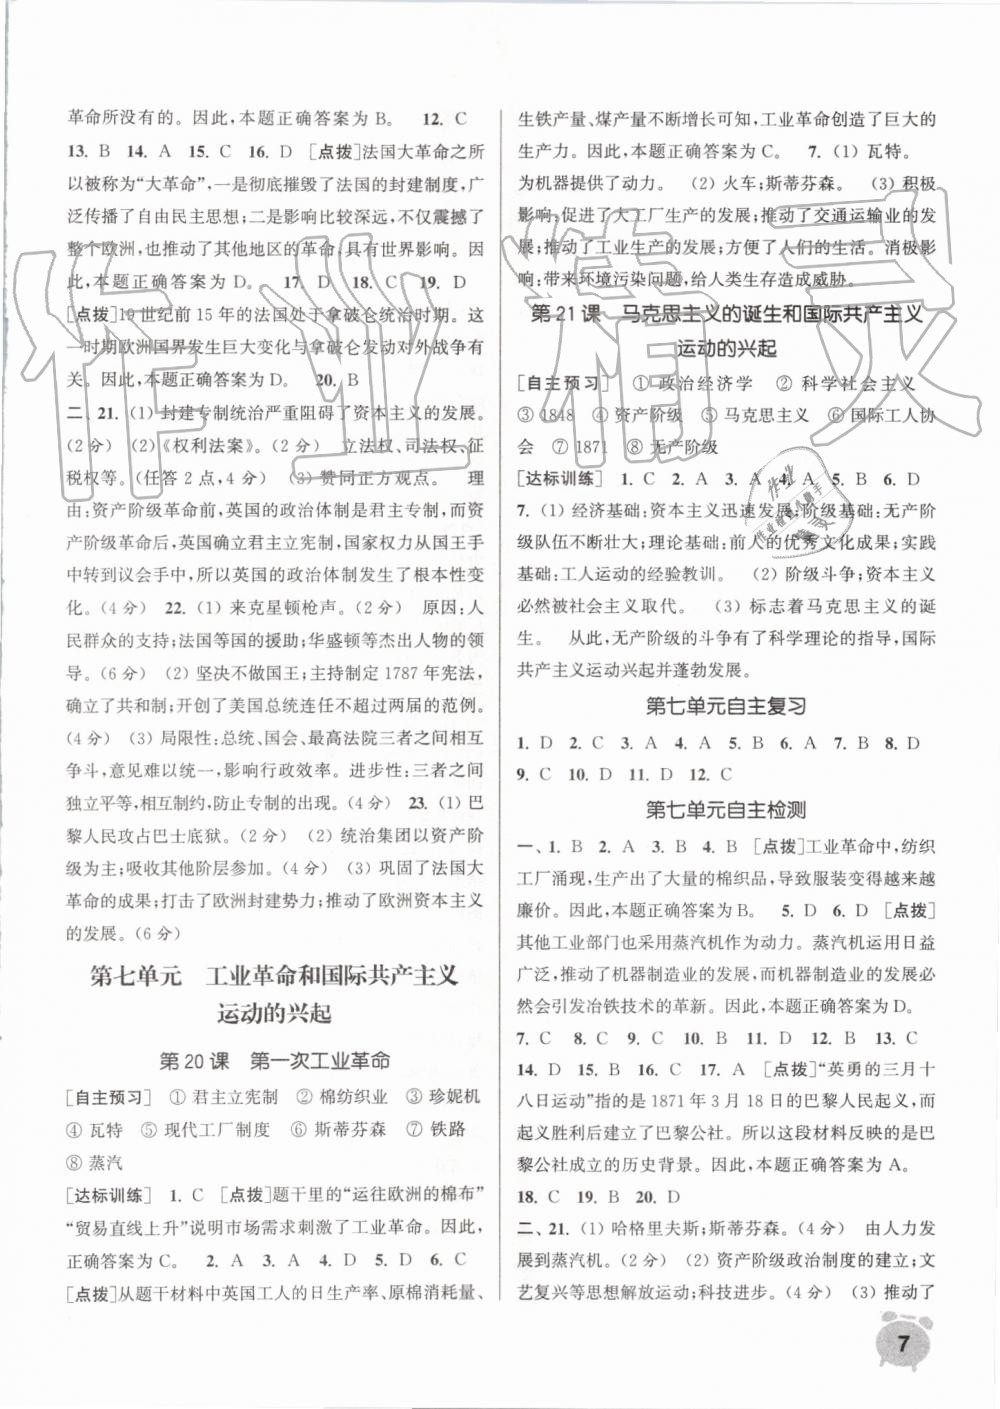 革命所没有的。因此,本题正确答案为 B。 12. C
13. B 14. A 15. C 16. D [点拨]法国大革命之所
以被称为“大革命”,一是彻底摧毁了法国的封建制度,广
泛传播了自由民主思想;二是影响比较深远,不仅震撼了
整个欧洲,也推动了其他地区的革命,具有世界影响。因
此,本题正确答案为 D。 17. D 18. C 19. D
[点拨]19 世纪前 15 年的法国处于拿破仑统治时期。这
一时期欧洲国界发生巨大变化与拿破仑发动对外战争有
关。因此,本题正确答案为 D。 20. B
二、21. (1) 封建专制统治严重阻碍了资本主义的发展。
(2 分) (2)《权利法案》。(2 分) 立法权、司法权、征
税权等。(任答 2 点,4 分) (3) 赞同正方观点。 理
由:资产阶级革命前,英国的政治体制是君主专制,而资
产阶级革命后,英国确立君主立宪制,国家权力从国王手
中转到议会手中,所以英国的政治体制发生了根本性变
化。(4 分) 22. (1) 来克星顿枪声。 原因:人
民群众的支持;法国等国的援助;华盛顿等杰出人物的领
导。(6 分) (2) 坚决不做国王;主持制定 1787 年宪法,
确立了共和制;开创了美国总统连任不超过两届的范例。
(4 分) (3) 局限性:总统、国会、最高法院三者之间相互
争斗,意见难以统一,影响行政效率。进步性:三者之间
独立平等,相互制约,防止专制的出现。(4 分) 23. (1) 巴
黎人民攻占巴士底狱。(2 分) (2) 统治集团以资产阶
级为主;吸收其他阶层参加。(4 分) (3) 巩固了法国大
革命的成果;打击了欧洲封建势力;推动了欧洲资本主义
的发展。(6 分)
第七单元 工业革命和国际共产主义
运动的兴起
第 20 课 第一次工业革命
[自主预习] ① 君主立宪制 ② 棉纺织业 ③ 珍妮机
④ 瓦特 ⑤ 现代工厂制度 ⑥ 斯蒂芬森 ⑦ 铁路
⑧ 蒸汽
[达标训练] 1. C [点拨]题干里的“运往欧洲的棉布”
“贸易直线上升”说明市场需求刺激了工业革命。因此,本题
正确答案为 C。 2. A 3. A 4. D 5. D 6. C
[点拨]从题干材料中英国工人的日生产率、原棉消耗量、
生铁产量、煤产量不断增长可知,工业革命创造了巨大的
生产力。因此,本题正确答案为 C。 7. (1) 瓦特。
为机器提供了动力。 (2) 火车;斯蒂芬森。 (3) 积极
影响:促进了大工厂生产的发展;推动了交通运输业的发
展;推动了工业生产的发展;方便了人们的生活。消极影
响:带来环境污染问题,给人类生存造成威胁。
第 21 课 马克思主义的诞生和国际共产主义
运动的兴起
[自主预习] ① 政治经济学 ② 科学社会主义
③ 1848 ④ 资产阶级 ⑤ 马克思主义 ⑥ 国际工人协
会 ⑦ 1871 ⑧ 无产阶级
[达标训练] 1. C 2. A 3. A 4. A 5. A 6. D
7. (1) 经济基础:资本主义迅速发展;阶级基础:无产阶
级队伍不断壮大;理论基础:前人的优秀文化成果;实践
基础:工人运动的经验教训。 (2) 阶级斗争;资本主义
必然被社会主义取代。 (3) 标志着马克思主义的诞
生。 从此,无产阶级的斗争有了科学理论的指导,国际
共产主义运动兴起并蓬勃发展。
第七单元自主复习
1. D 2. C 3. A 4. A 5. A 6. D 7. B 8. D
9. C 10. D 11. D 12. C
第七单元自主检测
一、1. B 2. A 3. B 4. B [点拨]工业革命中,纺织
工厂涌现,生产出了大量的棉织品,导致服装变得越来越
廉价。因此,本题正确答案为 B。 5. D 6. D [点拨]
其他工业部门也采用蒸汽机作为动力。蒸汽机运用日益
广泛,推动了机器制造业的发展,机器制造业的发展必
然会引发冶铁技术的革新。因此,本题正确答案为 D。
7. C 8. C 9. C 10. A 11. D 12. B 13. C
14. D 15. B 16. C 17. A [点拨]“英勇的三月十
八日运动”指的是 1871 年 3 月 18 日的巴黎人民起义,而
起义胜利后建立了巴黎公社。所以这段材料反映的是巴
黎公社成立的历史背景。因此,本题正确答案为 A。
18. C 19. B 20. D
二、21. (1) 哈格里夫斯;斯蒂芬森。(4 分) 由人力发
展到蒸汽机。(2 分) (2) 资产阶级政治制度的建立;文
艺复兴等思想解放运动;科技进步。(4 分) (3) 推动了
7
作业精灵